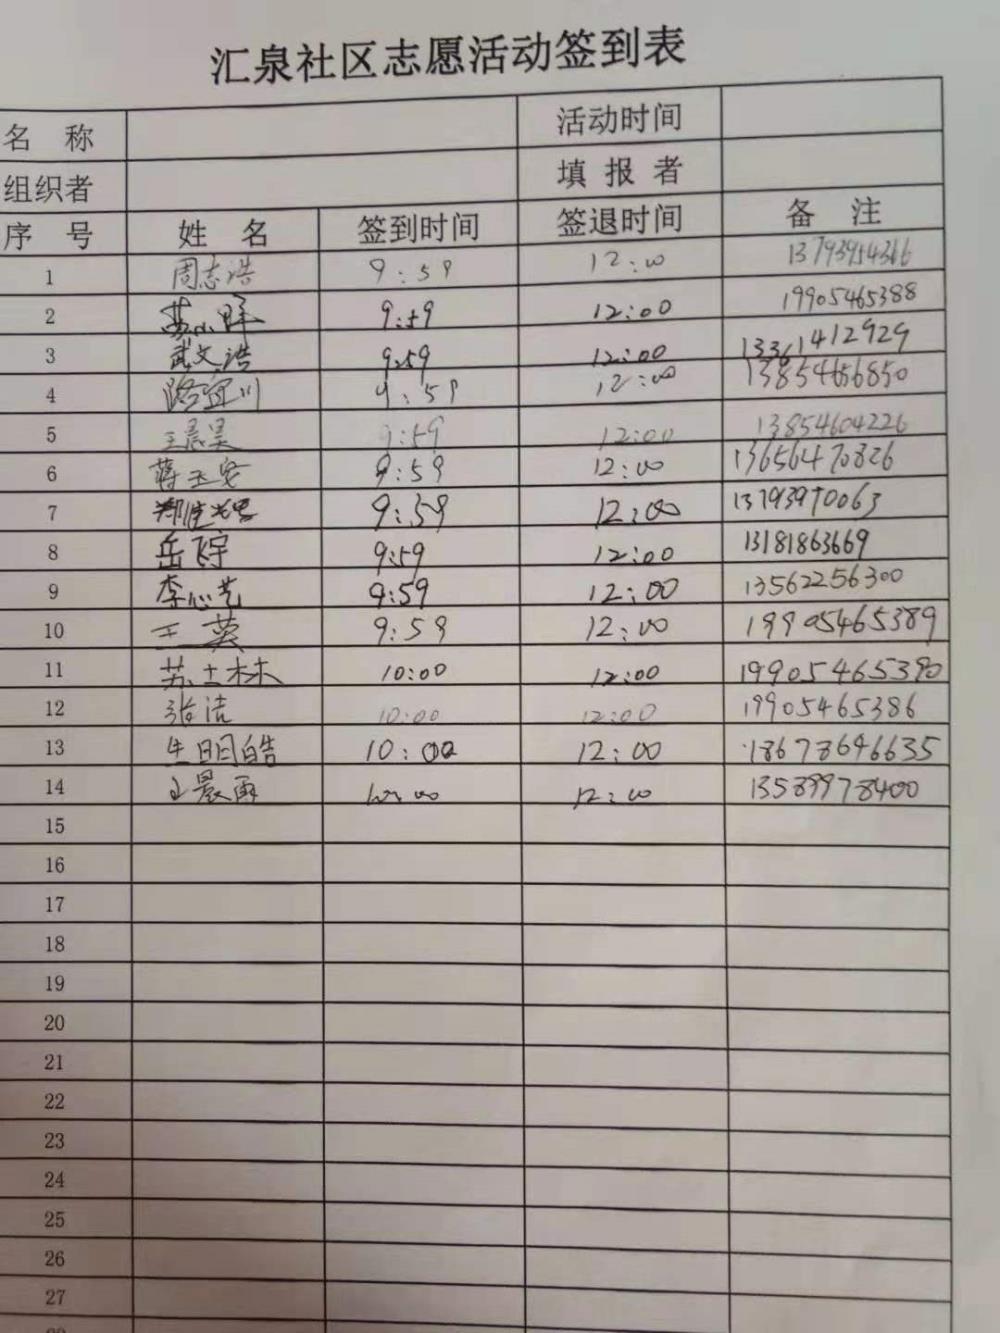 汇泉社区志愿活动签到表
名 称 活动时间
组织者 填 报 者
序 号 姓 名 签到时间 签退时间 备 注
1 周志浩 9:59 12:00 13793954366
2 9:59 12:00 19905465388
3 武文浩 9:59 12:00 13361412929
4 路宜川 9:59 12:00 13854656850
5 王晨昊 9:59 12:00 13854604226
6 蒋玉安 9:59 12:00 13656470826
7 9:59 12:00 13793970063
8 岳飞宇 9:59 12:00 13181863669
9 李心艺 9:59 12:00 13562256300
10 王英 9:59 12:00 19905465389
11 苏士林 10:00 12:00 19905465390
12 张洁 10:00 12:00 19905465386
13 生明皓 10:00 12:00 18678646635
14 王晨雨 10:00 12:00 13589978400
15
16
17
18
19
20
21
22
23
24
25
26
27